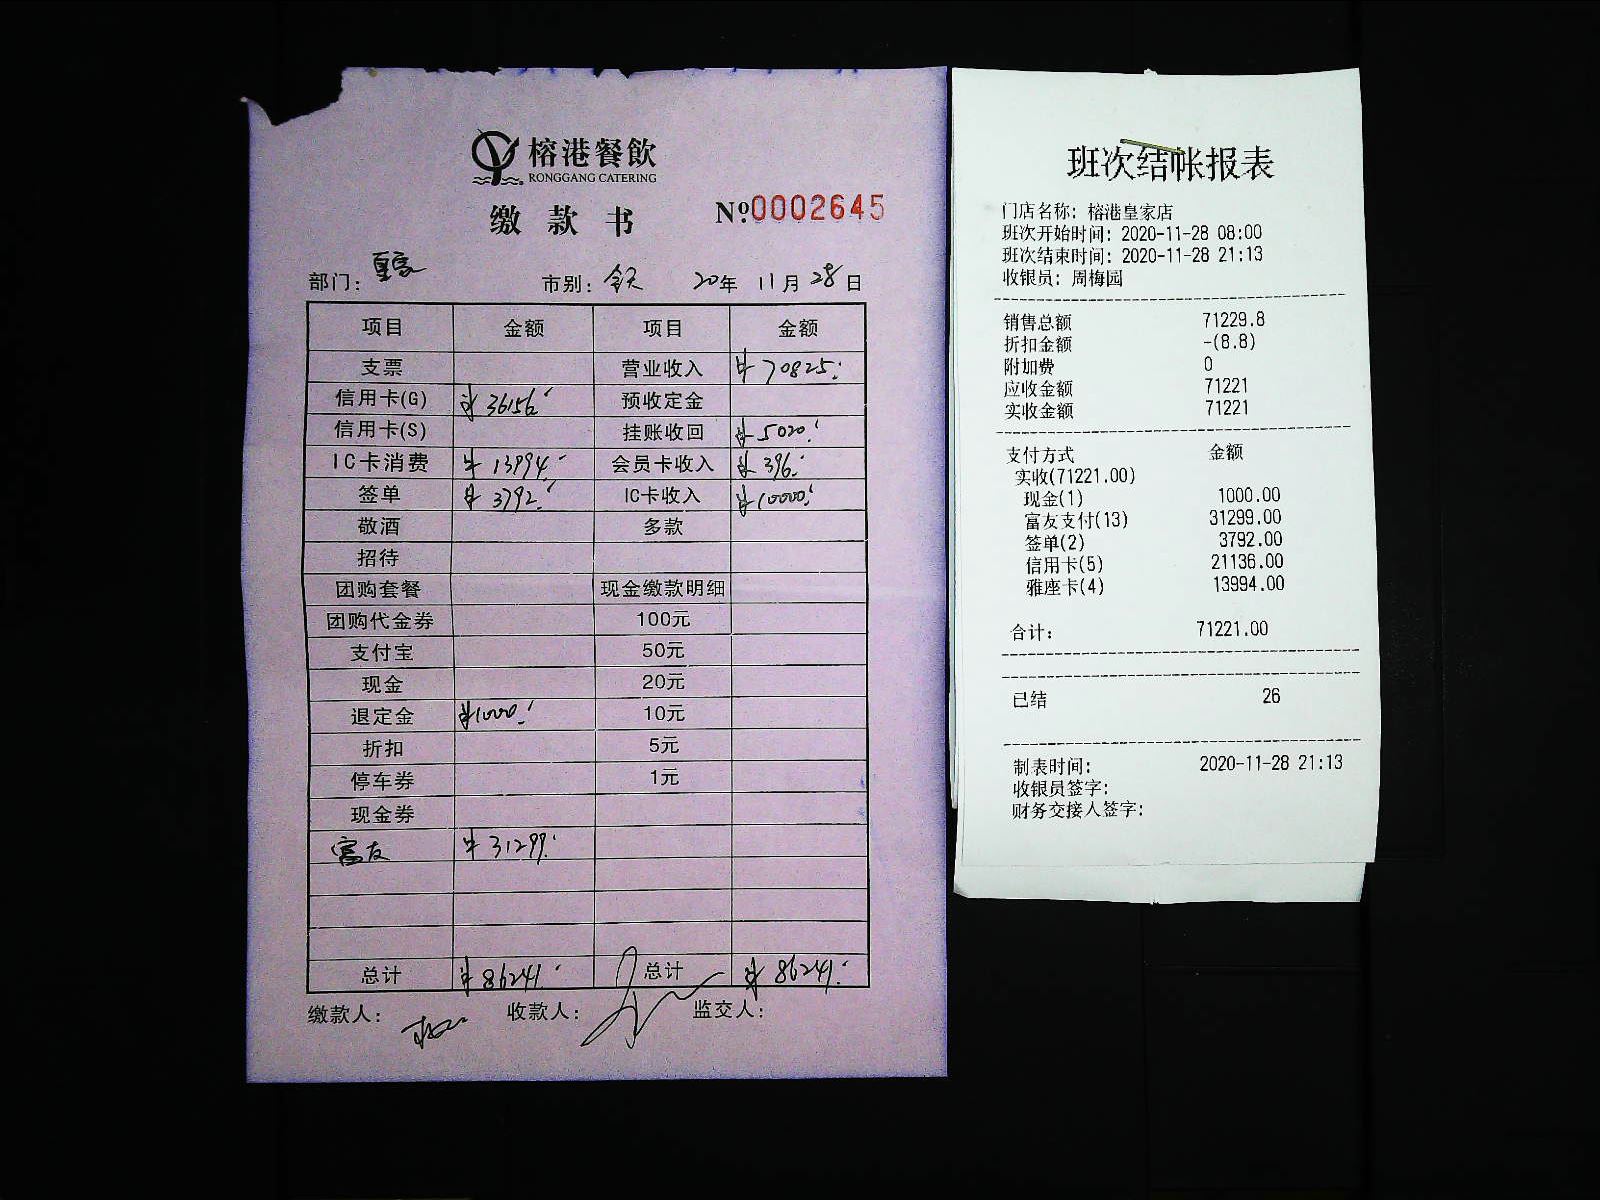 榕港餐飲
RONGGANG CATERING
缴款书 №0002645
部门: 皇家 市别: 全天 20年 11月 28日
项目 金额 项目 金额
支票 营业收入 ¥70825.
信用卡(G) ¥36156. 预收定金
信用卡(S) 挂账收回 ¥5020.
IC卡消费 ¥13994. 会员卡收入 ¥396.
签单 ¥3792. IC卡收入 ¥10000.
敬酒 多款
招待
团购套餐 现金缴款明细
团购代金券 100元
支付宝 50元
现金 20元
退定金 ¥1000. 10元
折扣 5元
停车券 1元
现金券
富友 ¥31299.
总计 ¥86241. 总计 ¥86241.
缴款人: 收款人: 监交人:
班次结帐报表
门店名称: 榕港皇家店
班次开始时间: 2020-11-28 08:00
班次结束时间: 2020-11-28 21:13
收银员: 周梅园
销售总额 71229.8
折扣金额 -(8.8)
附加费 0
应收金额 71221
实收金额 71221
支付方式 金额
实收(71221.00)
现金(1) 1000.00
富友支付(13) 31299.00
签单(2) 3792.00
信用卡(5) 21136.00
雅座卡(4) 13994.00
合计: 71221.00
已结 26
制表时间: 2020-11-28 21:13
收银员签字:
财务交接人签字: